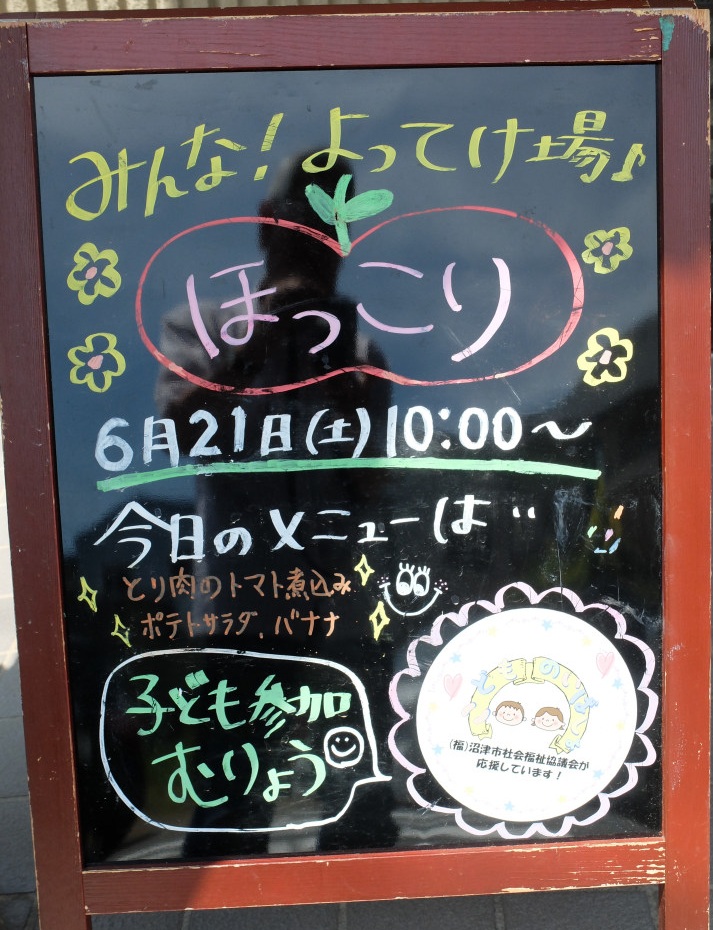 みんな！よってけ場♪
ほっこり
6月21日(土)10:00～
今日のメニューは‥
とり肉のトマト煮込み
ポテトサラダ、バナナ
子ども参加
むりょう
こどものいばしょ
(福)沼津市社会福祉協議会が
応援しています！